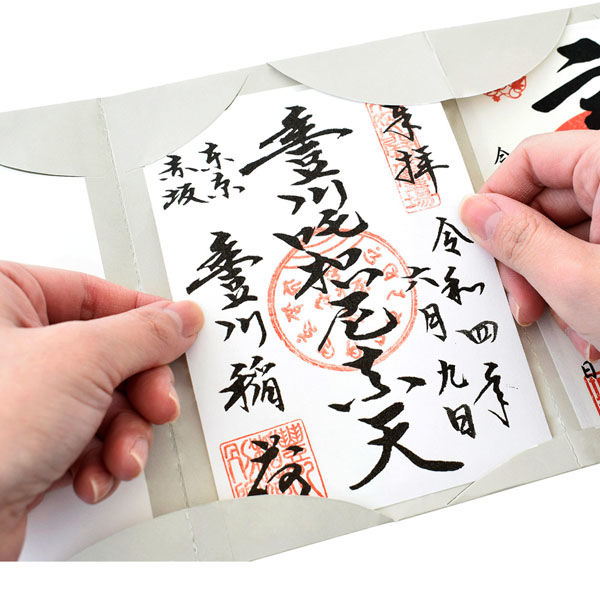 奉拝
令和四年
六月九日
豊川吒枳尼真天
東京
赤坂
豊川稲荷